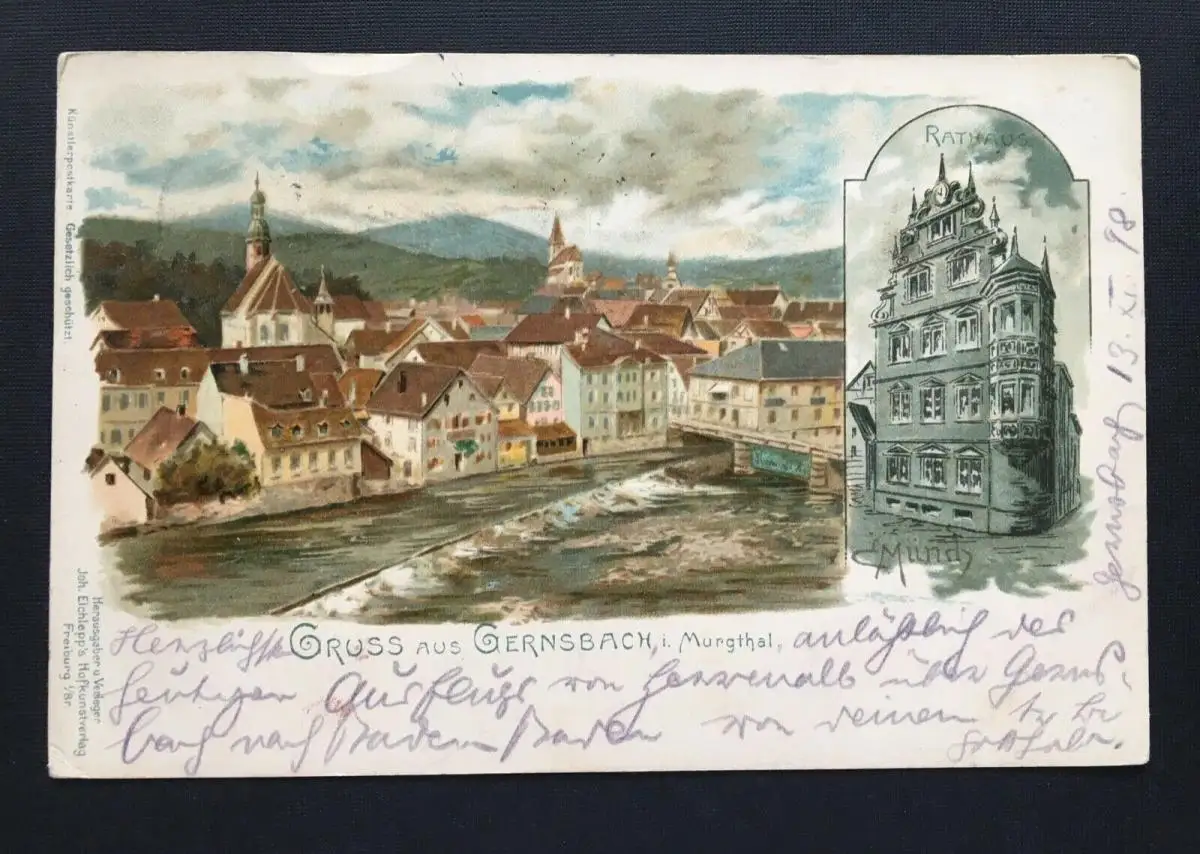 Künstlerpostkarte Gesetzlich geschützt.
Herausgeber u Verleger
Joh. Elchlepp's Hofkunstverlag
Freiburg i/Br
RATHAUS
CMünd
Gernsbach 13. XI. 98.
Herzlichste GRUSS AUS GERNSBACH, i. Murgthal, anläßlich des
heutigen Ausflugs von Herrenalb über Gerns-
bach nach Baden Baden von deinem